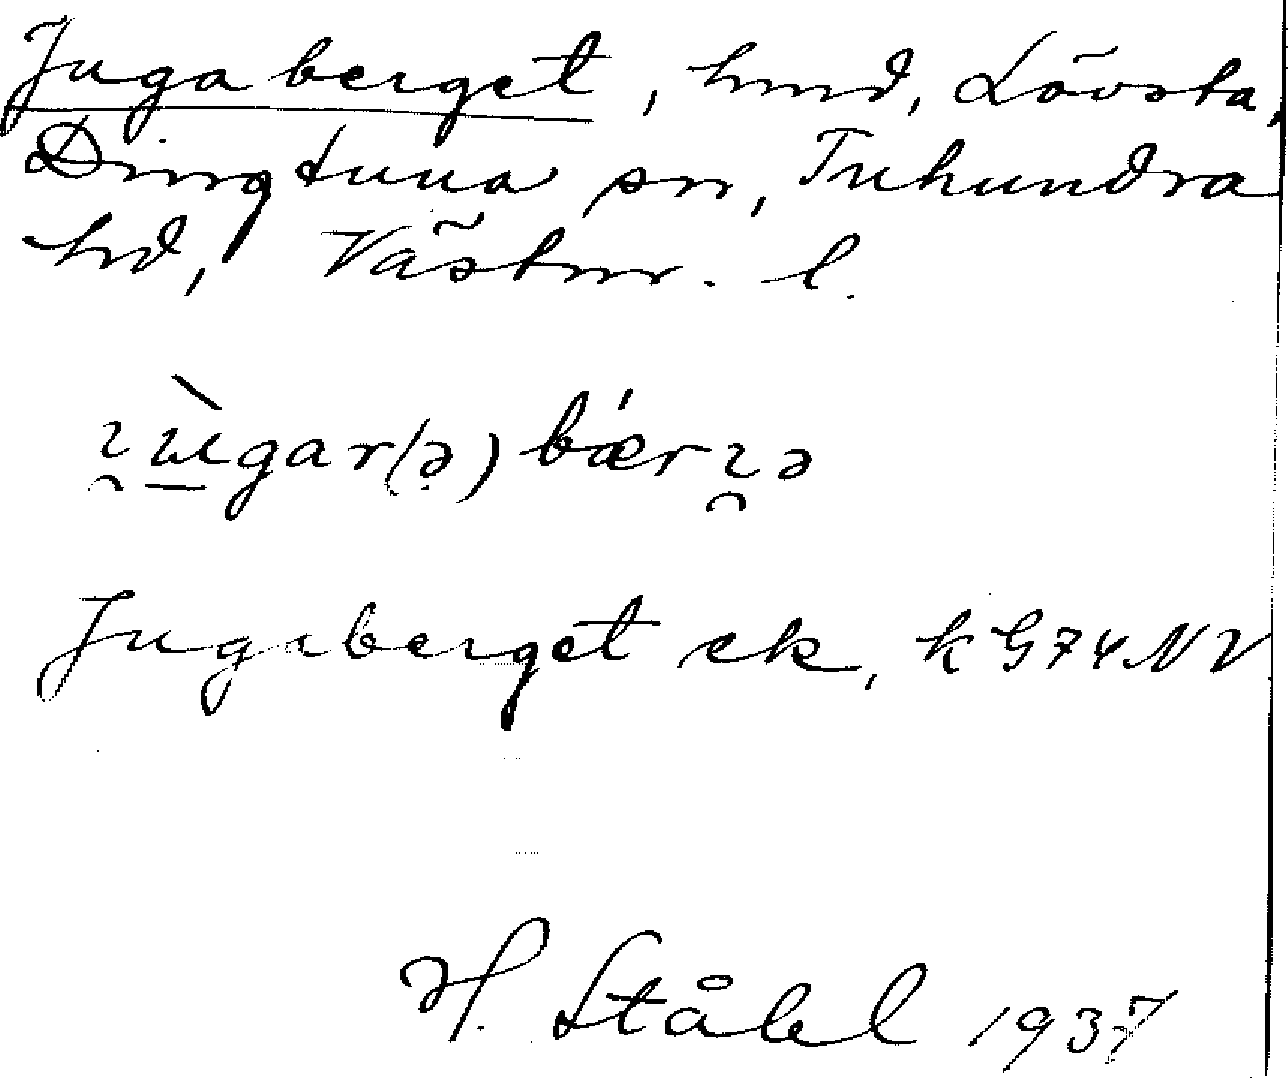 Jugaberget, hmd, Lövsta,
Dingtuna sn, Tuhundra
hd, Västm. l.
ɪ̯ùgar(ə) bǽrɪ̯ə
Jugaberget ek, k G74NV
H. Ståhl 1937